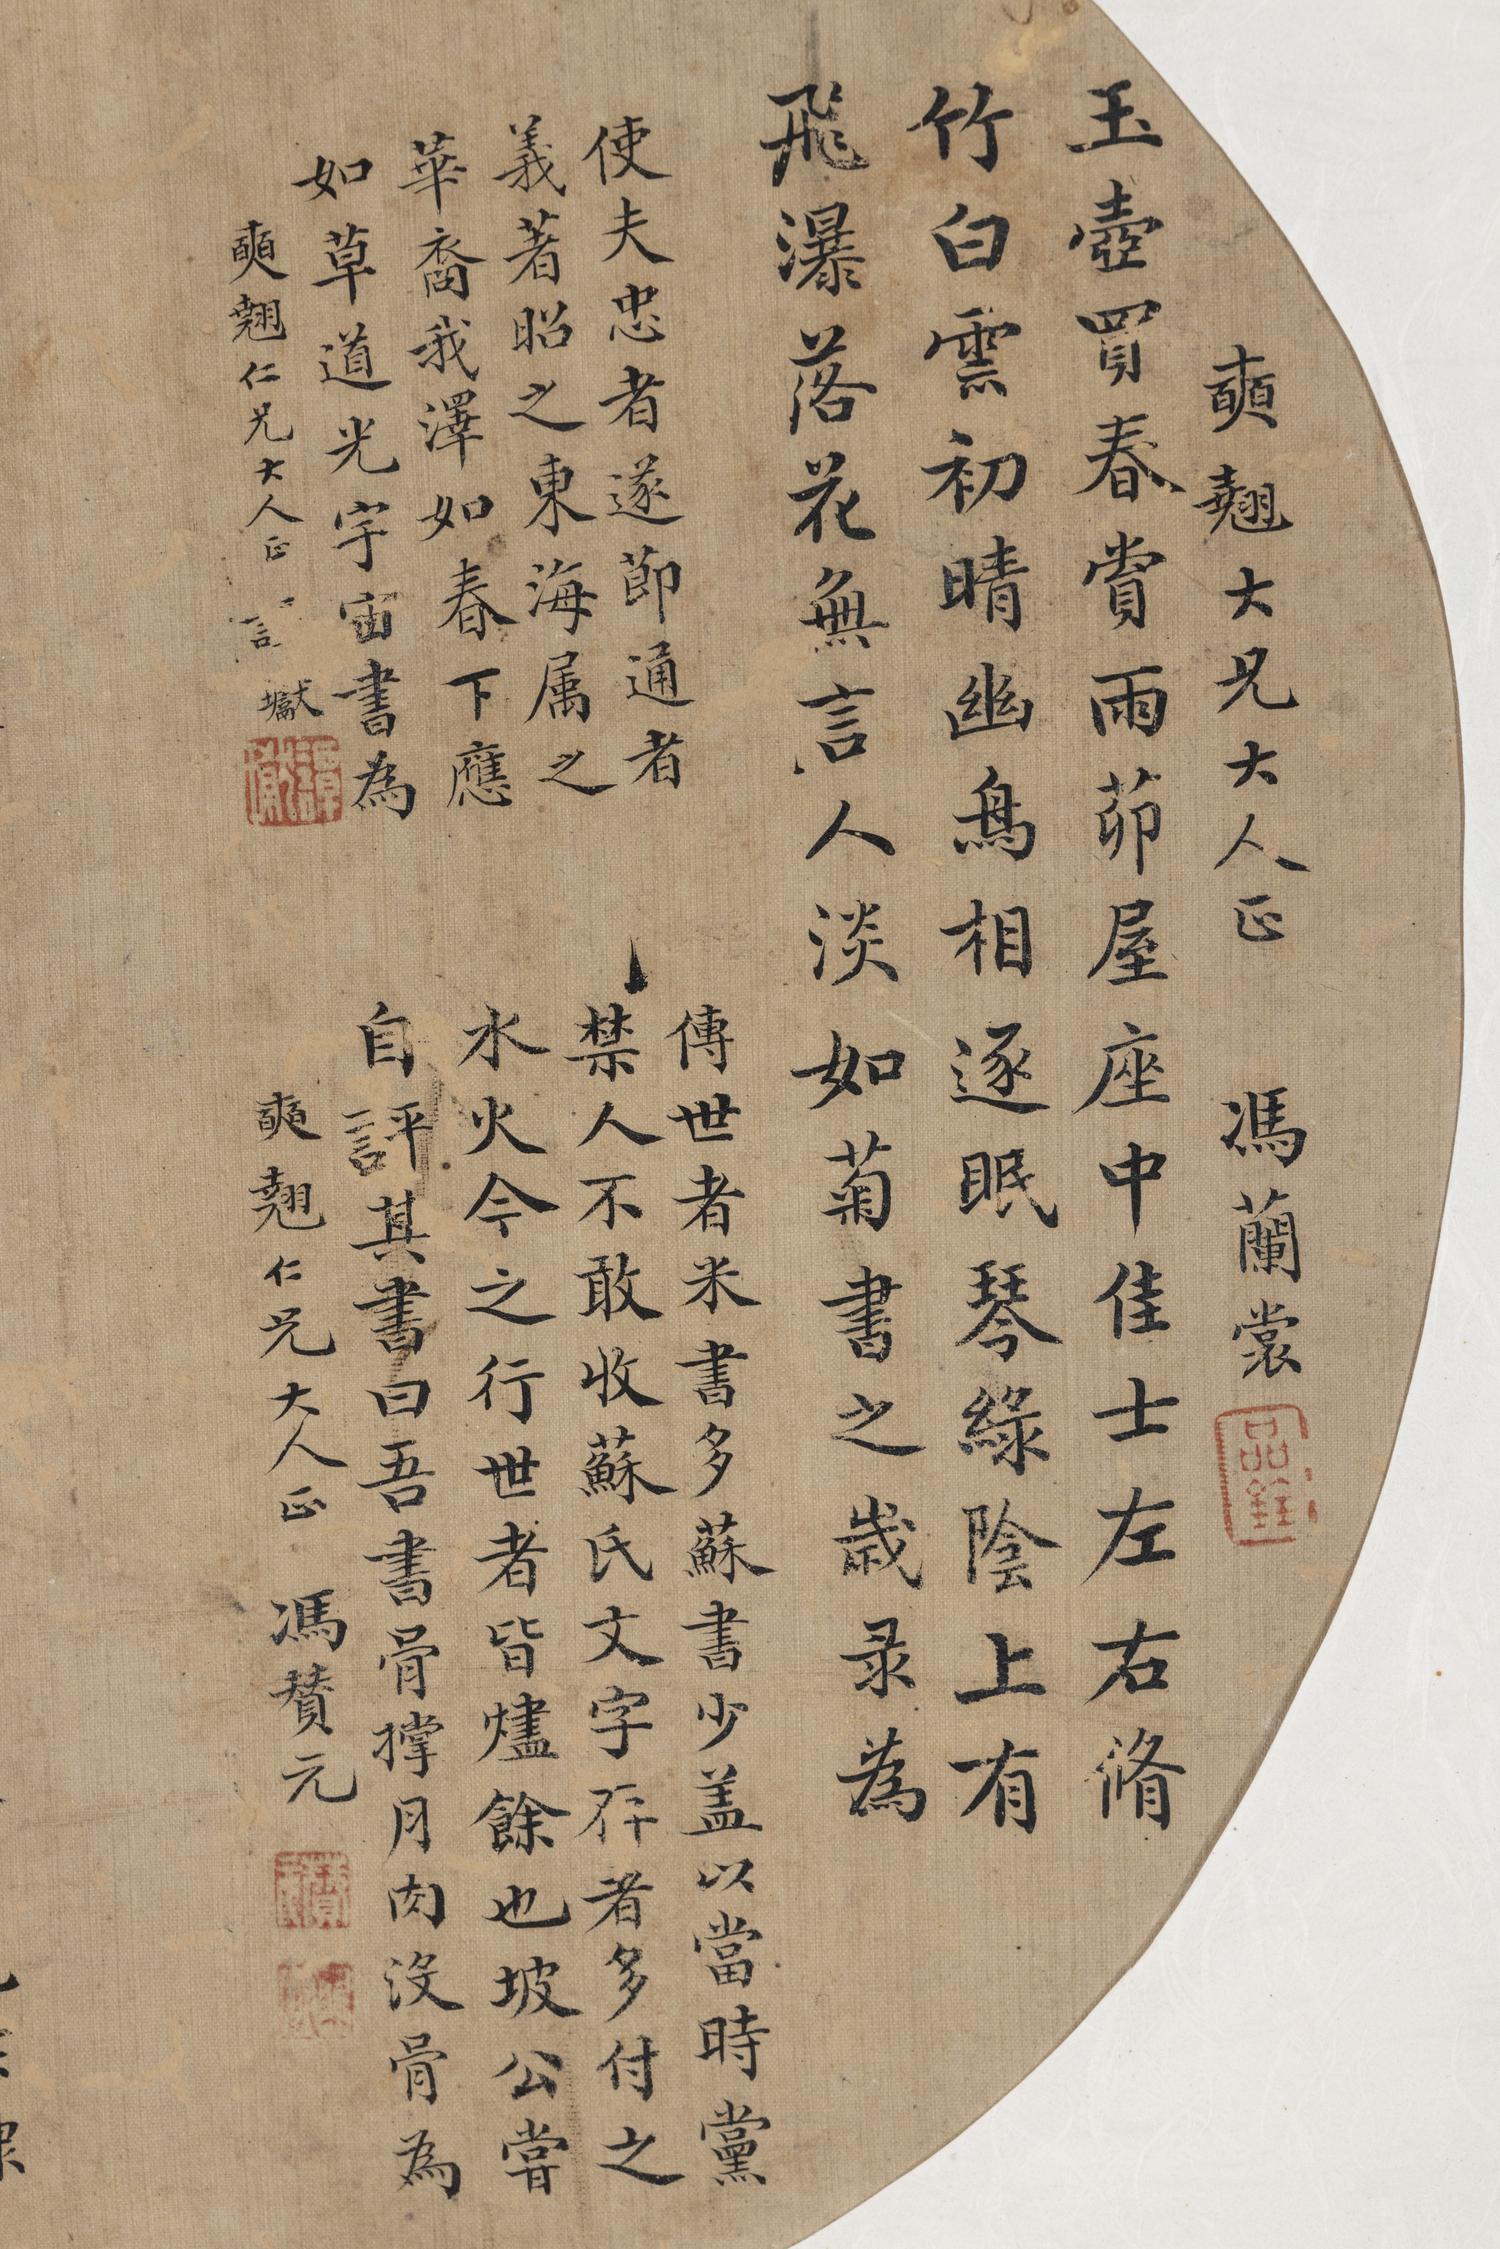 玉壺買春賞雨茆屋座中佳士左右脩
竹白雲初晴幽鳥相逐眠琴綠陰上有
飛瀑落花無言人淡如菊書之歲录為
奭翹大兄大人正 馮蘭裳
使夫忠者遂節通者
義著昭之東海属之
華裔我澤如春下應
如草道光宇宙書為
奭翹仁兄大人正
傳世者米書多蘇書少盖以當時黨
禁人不敢收蘇氏文字存者多付之
水火今之行世者皆燼餘也坡公嘗
自評其書曰吾書骨撑月肉沒骨為
奭翹仁兄大人正 馮贊元